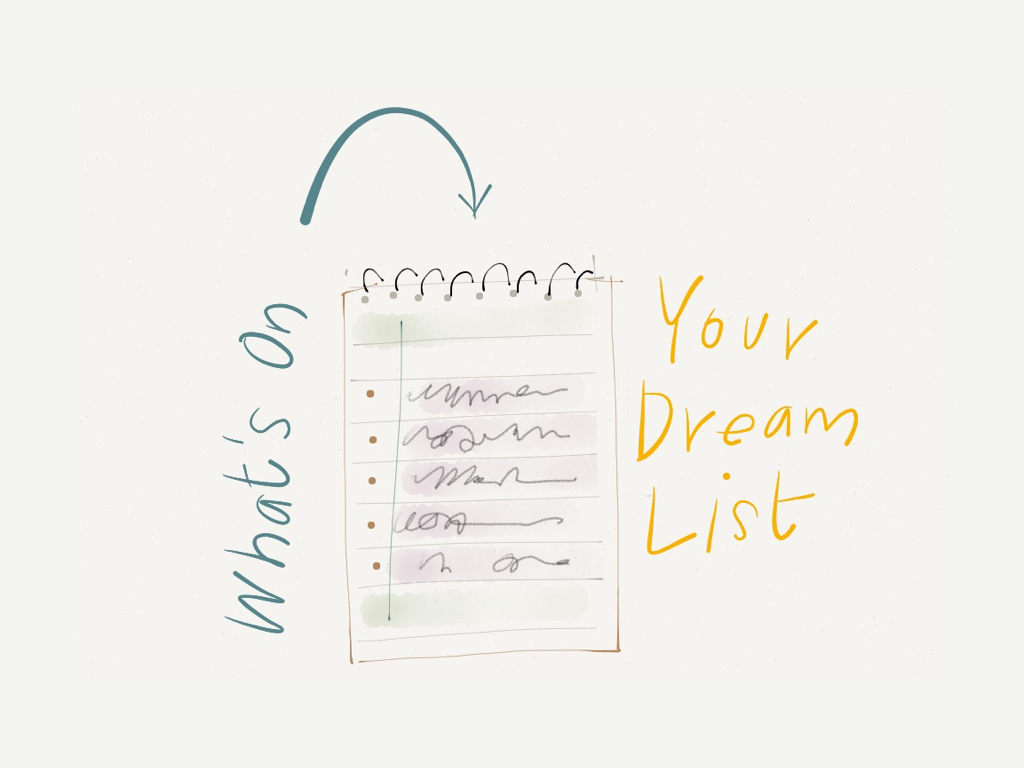 What's On
Your
Dream
List